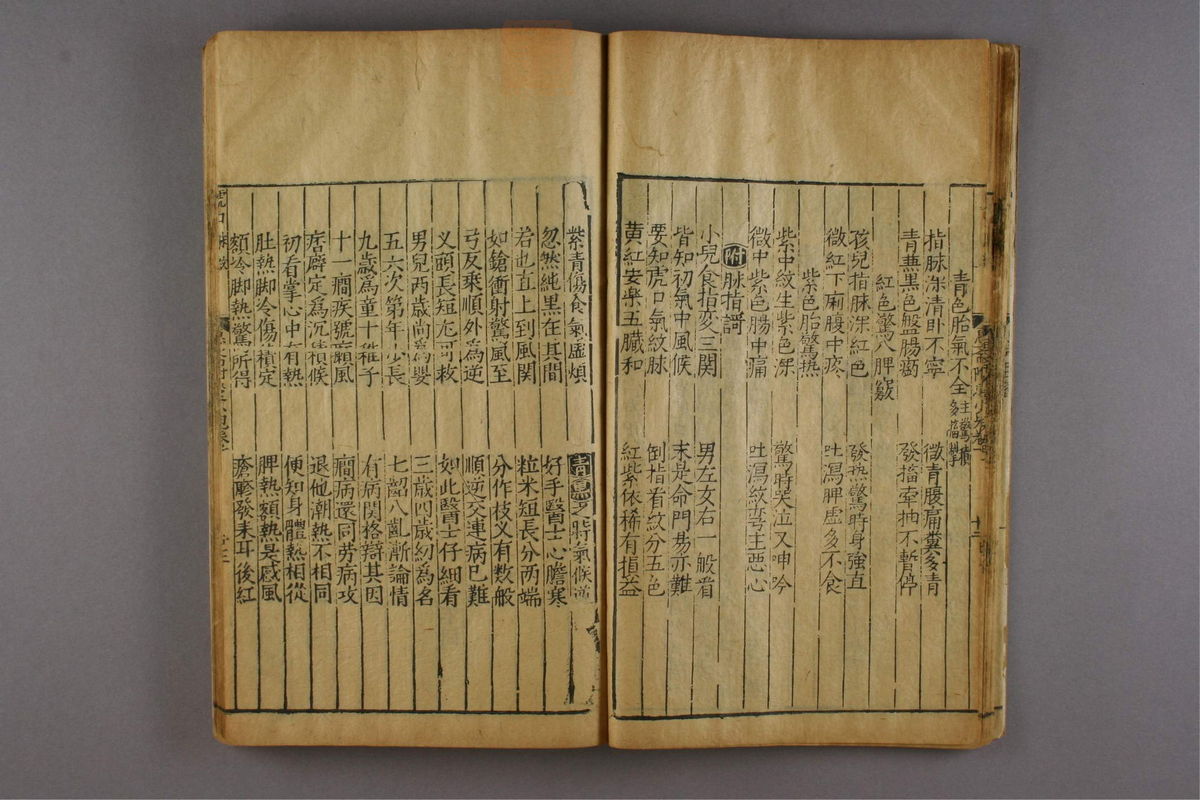 青色胎氣不全 主驚積 多搐搦
指脉深清卧不寧 微青腹扁糞多青
青兼黑色盤腸瘹 發搐牽抽不暫停
紅色驚入脾竅
孩兒指脉深紅色 發熱驚時身強直
微紅下痢腹中疼 吐瀉脾虛多不食
紫色胎驚熱
紫中紋生紫色深 驚時哭泣又呻吟
微中紫色腸中痛 吐瀉紋弯主惡心
附 脉指訶
小兒食指变三関 男左女右一般看
皆知初氣中風候 末是命門易亦難
要知虎口氣紋脉 倒指看紋分五色
黄紅安楽五臓和 紅紫依稀有損益
紫青傷食氣虛煩 青 時氣候
忽然純黒在其間 好手醫士心膽寒
若也直上到風関 粒米短長分兩端
如鎗衝射驚風至 分作枝乂有数般
弓反乗順外為逆 順逆交連病已難
乂頭長短尤可救 如此醫士仔細看
男兒兩歳尚為嬰 三歳四歳㓜為名
五六次第年少長 七齠八齓漸論情
九歳為童十稚子 有病関格辯其因
十一癎疾號癲風 癎病還同労病攻
痞癖定為沉積候 退他潮熱不相同
初看掌心中有熱 便知身體熱相從
肚熱脚冷傷積定 脾熱額熱是感風
額冷脚熱驚所得 瘡疹發来耳後紅